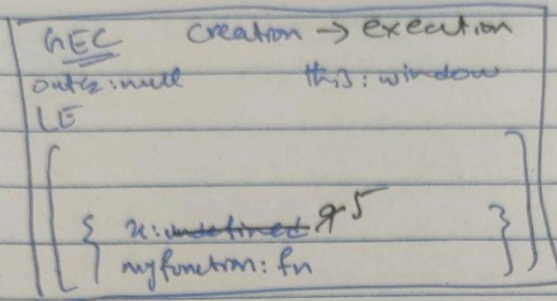 GEC creation → execution
outer: null this: window
LE
{ x: undefined 5 }
myfunction: fn